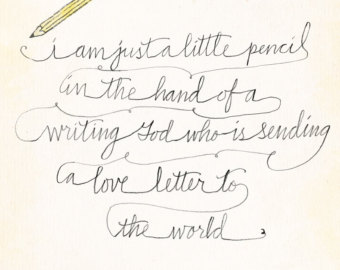 i am just a little pencil
in the hand of a
writing God who is sending
a love letter to
the world.